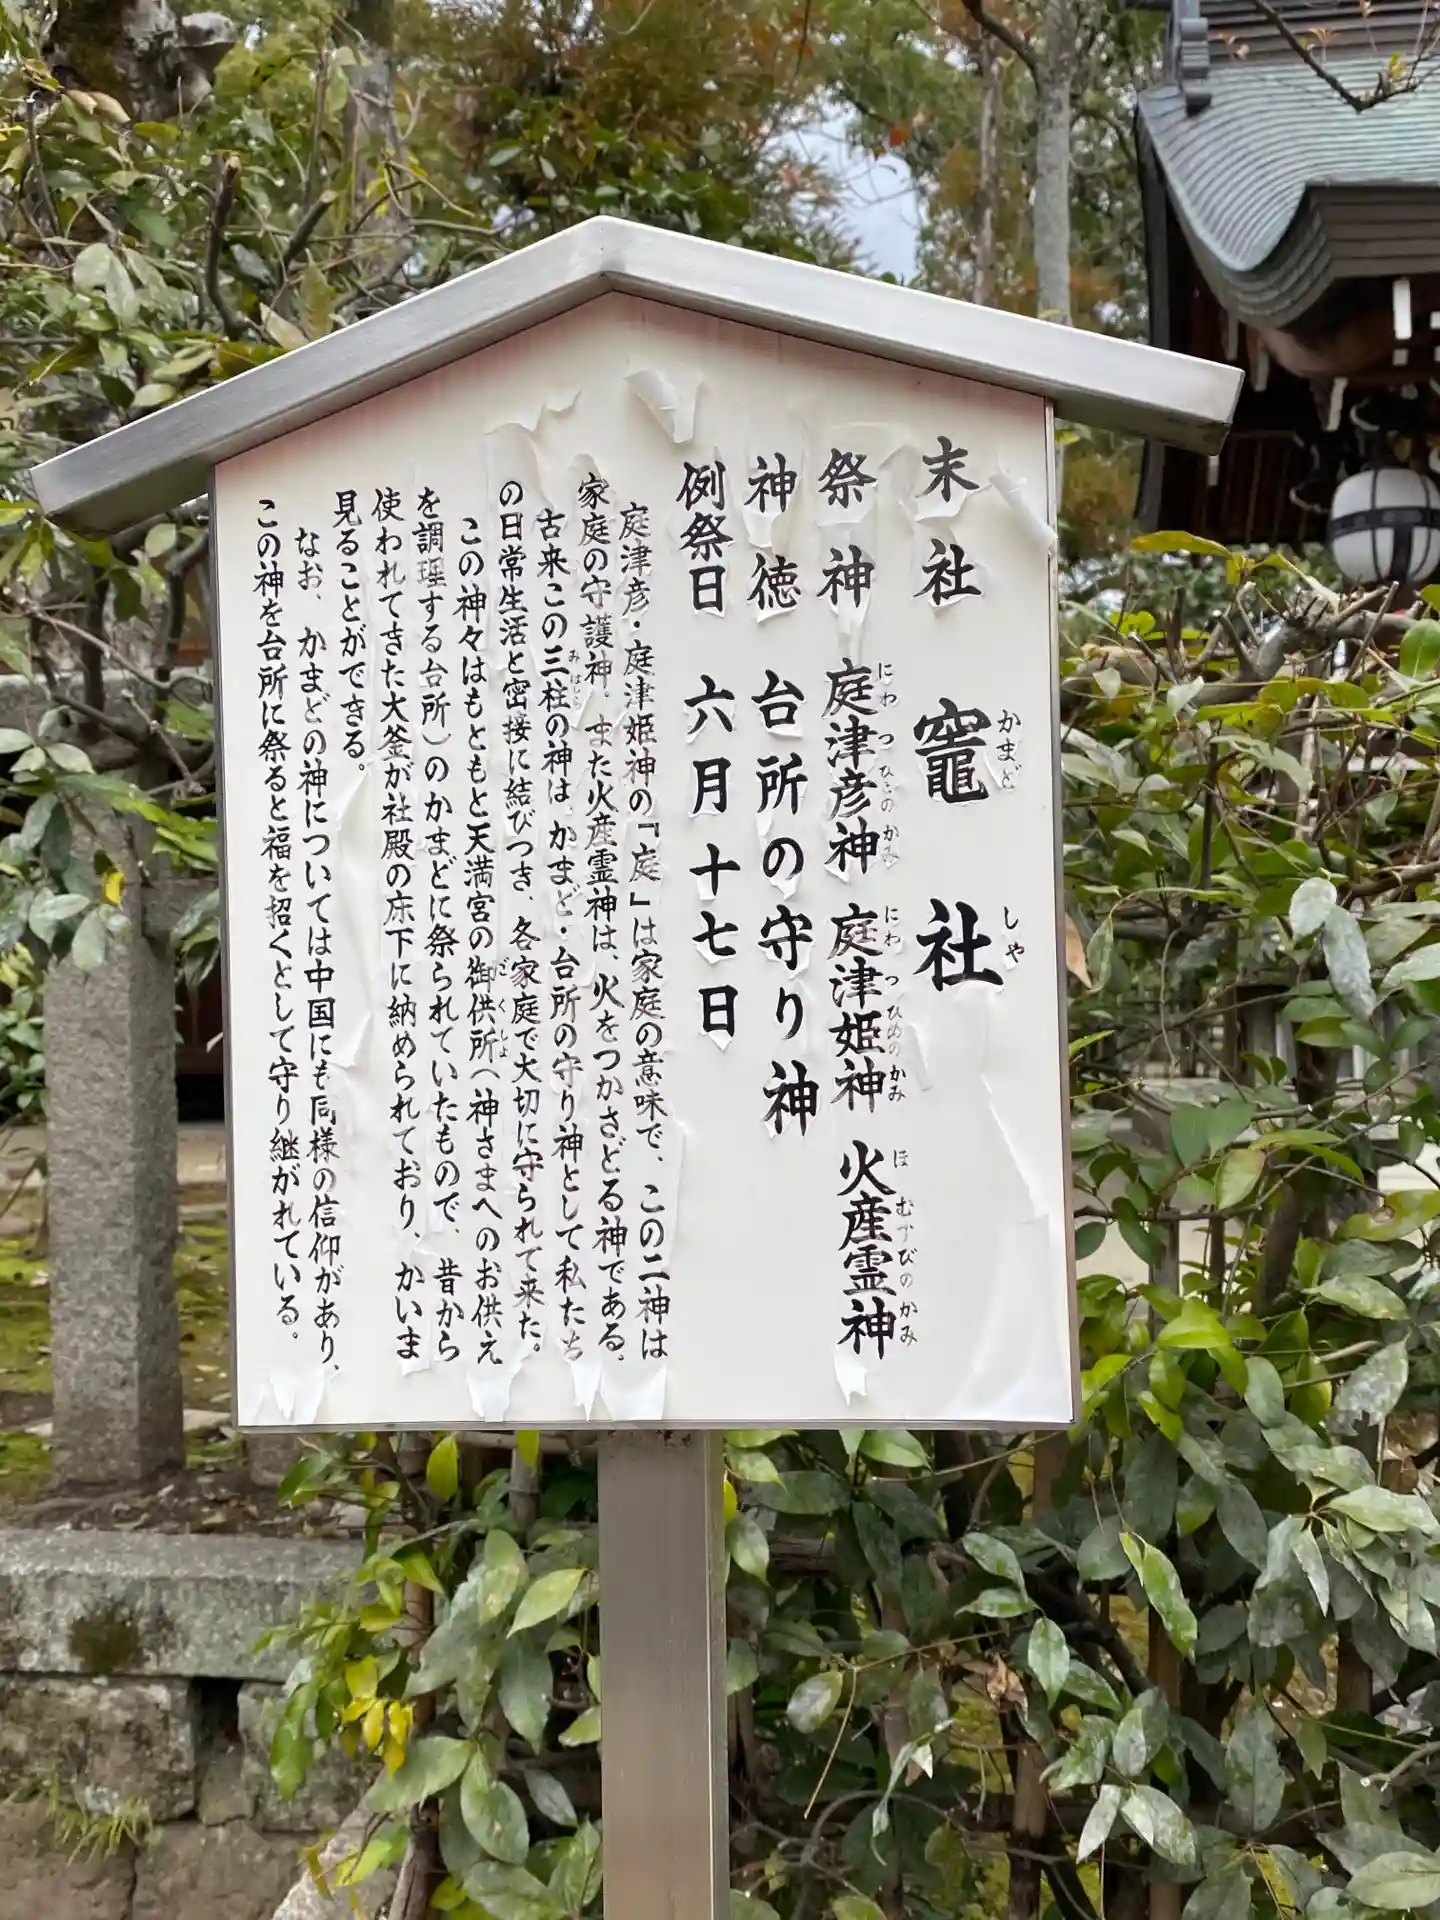 末社 竈社
かまど しや
祭神 庭津彦神 庭津姫神 火産霊神
にわ つ ひこの かみ にわ つ ひめの かみ ほ むすびの かみ
神徳 台所の守り神
例祭日 六月十七日
庭津彦・庭津姫神の「庭」は家庭の意味で、この二神は
家庭の守護神。また火産霊神は、火をつかさどる神である。
古来この三柱の神は、かまど・台所の守り神として私たち
み はしら
の日常生活と密接に結びつき、各家庭で大切に守られて来た。
この神々はもともと天満宮の御供所(神さまへのお供え
ご くしょ
を調理する台所)のかまどに祭られていたもので、昔から
使われてきた大釜が社殿の床下に納められており、かいま
見ることができる。
なお、かまどの神については中国にも同様の信仰があり、
この神を台所に祭ると福を招くとして守り継がれている。